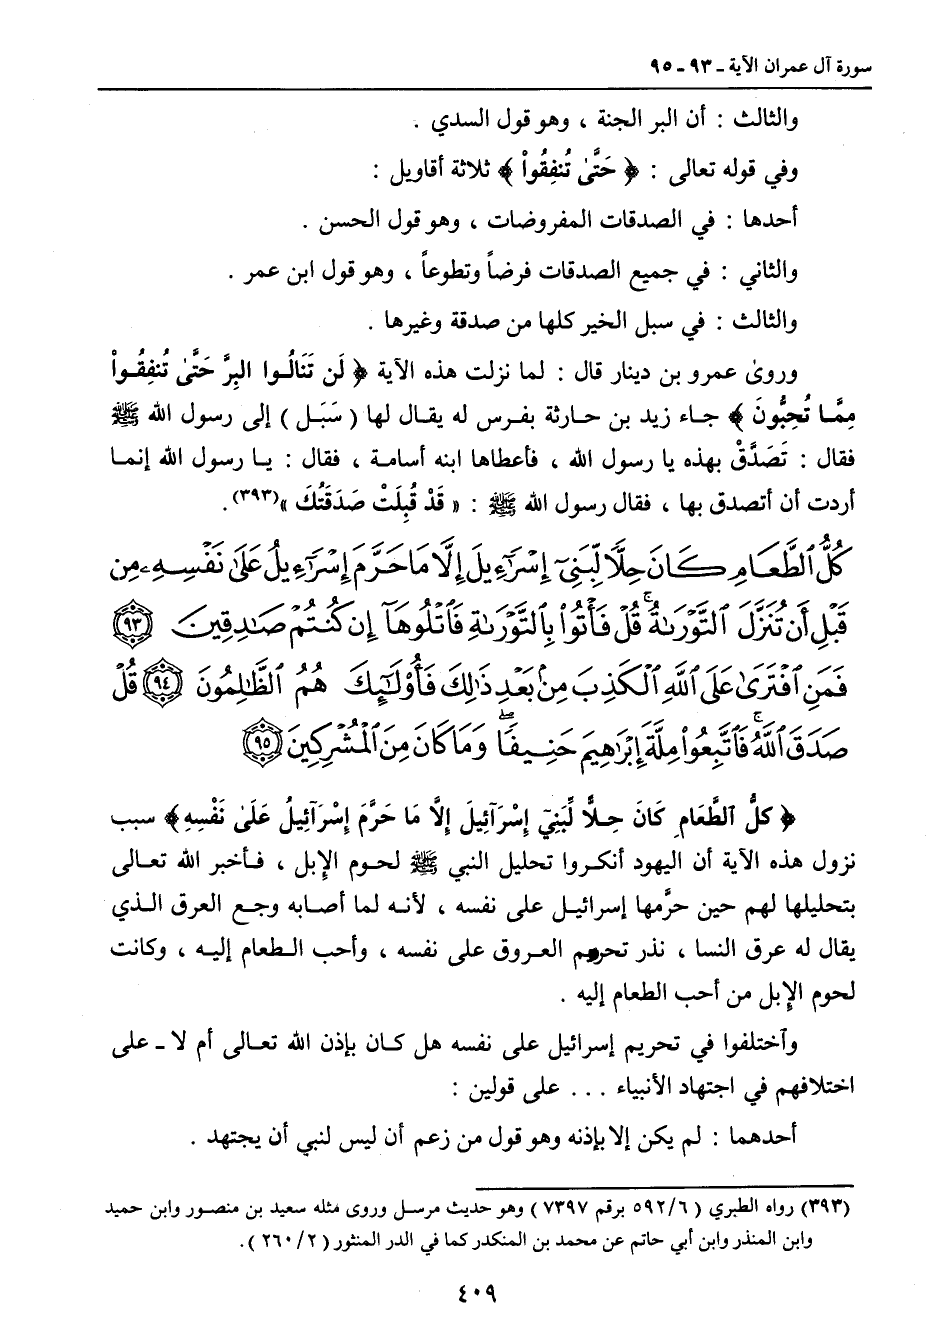 سورة آل عمران الآية ـ ٩٣ ـ ٩٥
والثالث : أن البر الجنة ، وهو قول السدي .
وفي قوله تعالى : ﴿ حَتَّىٰ تُنفِقُواْ ﴾ ثلاثة أقاويل :
أحدها : في الصدقات المفروضات ، وهو قول الحسن .
والثاني : في جميع الصدقات فرضاً وتطوعاً ، وهو قول ابن عمر .
والثالث : في سبل الخير كلها من صدقة وغيرها .
وروىٰ عمرو بن دينار قال : لما نزلت هذه الآية ﴿ لَن تَنَالُوا البِرَّ حَتَّىٰ تُنفِقُواْ
مِمَّا تُحِبُّونَ ﴾ جاء زيد بن حارثة بفرس له يقال لها ( سَبَل ) إلى رسول الله ﷺ
فقال : تَصَدَّقْ بهذه يا رسول الله ، فأعطاها ابنه أسامة ، فقال : يا رسول الله إنما
أردت أن أتصدق بها ، فقال رسول الله ﷺ : « قَدْ قُبِلَتْ صَدَقَتُكَ »(٣٩٣).
كُلُّ ٱلطَّعَامِ كَانَ حِلًّا لِّبَنِىٓ إِسْرَٰٓءِيلَ إِلَّا مَا حَرَّمَ إِسْرَٰٓءِيلُ عَلَىٰ نَفْسِهِۦ مِن
قَبْلِ أَن تُنَزَّلَ ٱلتَّوْرَىٰةُۗ قُلْ فَأْتُواْ بِٱلتَّوْرَىٰةِ فَٱتْلُوهَآ إِن كُنتُمْ صَٰدِقِينَ ٩٣
فَمَنِ ٱفْتَرَىٰ عَلَى ٱللَّهِ ٱلْكَذِبَ مِنۢ بَعْدِ ذَٰلِكَ فَأُوْلَٰٓئِكَ هُمُ ٱلظَّٰلِمُونَ ٩٤ قُلْ
صَدَقَ ٱللَّهُۗ فَٱتَّبِعُواْ مِلَّةَ إِبْرَٰهِيمَ حَنِيفًاۖ وَمَا كَانَ مِنَ ٱلْمُشْرِكِينَ ٩٥
﴿ كلُّ ٱلطَّعَامِ كَانَ حِلاًّ لِّبَنِيٓ إِسْرَآئِيلَ إِلَّا مَا حَرَّمَ إِسْرَآئِيلُ عَلَىٰ نَفْسِهِ﴾ سبب
نزول هذه الآية أن اليهود أنكروا تحليل النبي ﷺ لحوم الإبل ، فأخبر الله تعالى
بتحليلها لهم حين حرَّمها إسرائيل على نفسه ، لأنه لما أصابه وجع العرق الذي
يقال له عرق النسا ، نذر تحريم العروق على نفسه ، وأحب الطعام إليه ، وكانت
لحوم الإبل من أحب الطعام إليه .
وٱختلفوا في تحريم إسرائيل على نفسه هل كان بإذن الله تعالى أم لا ـ على
اختلافهم في اجتهاد الأنبياء ... على قولين :
أحدهما : لم يكن إلا بإذنه وهو قول من زعم أن ليس لنبي أن يجتهد .
(٣٩٣) رواه الطبري ( ٥٩٢/٦ برقم ٧٣٩٧ ) وهو حديث مرسل وروى مثله سعيد بن منصور وابن حميد
وابن المنذر وابن أبي حاتم عن محمد بن المنكدر كما في الدر المنثور ( ٢٦٠/٢ ).
٤٠٩